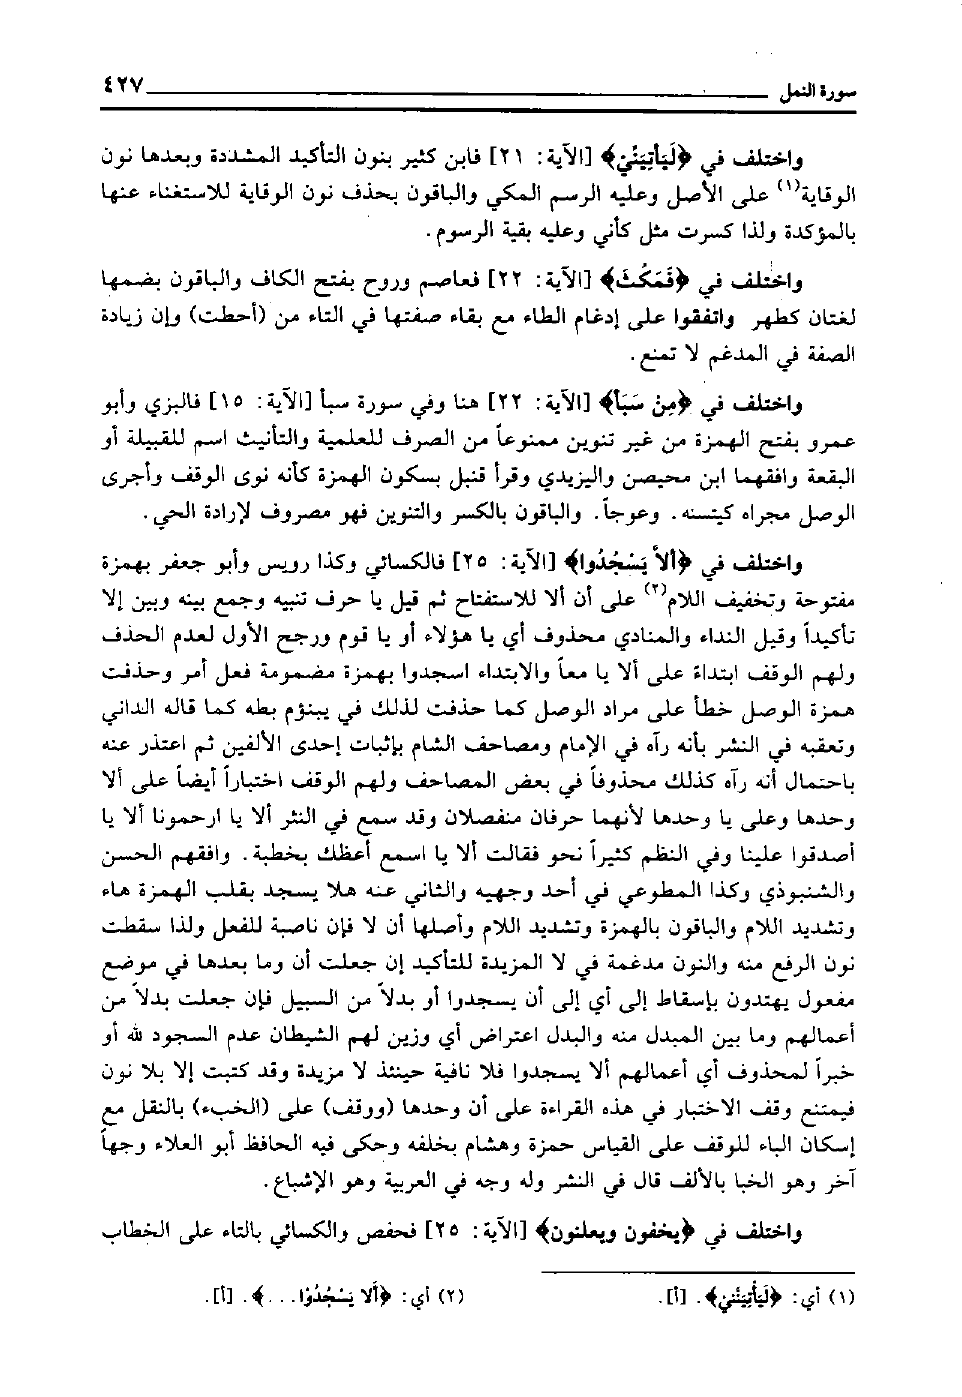 سورة النمل ٤٢٧
واختلف في ﴿لَيَأْتِيَنِّيْ﴾ [الآية: ٢١] فابن كثير بنون التأكيد المشددة وبعدها نون
الوقاية(١) على الأصل وعليه الرسم المكي والباقون بحذف نون الوقاية للاستغناء عنها
بالمؤكدة ولذا كسرت مثل كأني وعليه بقية الرسوم.
واختلف في ﴿فَمَكُثَ﴾ [الآية: ٢٢] فعاصم وروح بفتح الكاف والباقون بضمها
لغتان كطهر واتفقوا على إدغام الطاء مع بقاء صفتها في التاء من (أحطت) وإن زيادة
الصفة في المدغم لا تمنع.
واختلف في ﴿مِنْ سَبَأ﴾ [الآية: ٢٢] هنا وفي سورة سبأ [الآية: ١٥] فالبزي وأبو
عمرو بفتح الهمزة من غير تنوين ممنوعاً من الصرف للعلمية والتأنيث اسم للقبيلة أو
البقعة وافقهما ابن محيصن واليزيدي وقرأ قنبل بسكون الهمزة كأنه نوى الوقف وأجرى
الوصل مجراه كيتسنه. وعوجاً. والباقون بالكسر والتنوين فهو مصروف لإرادة الحي.
واختلف في ﴿أَلاَّ يَسْجُدُوا﴾ [الآية: ٢٥] فالكسائي وكذا رويس وأبو جعفر بهمزة
مفتوحة وتخفيف اللام(٢) على أن ألا للاستفتاح ثم قيل يا حرف تنبيه وجمع بينه وبين إلا
تأكيداً وقيل النداء والمنادي محذوف أي يا هؤلاء أو يا قوم ورجح الأول لعدم الحذف
ولهم الوقف ابتداءً على ألا يا معاً والابتداء اسجدوا بهمزة مضمومة فعل أمر وحذفت
همزة الوصل خطأ على مراد الوصل كما حذفت لذلك في يبنؤم بطه كما قاله الداني
وتعقبه في النشر بأنه رآه في الإمام ومصاحف الشام بإثبات إحدى الألفين ثم اعتذر عنه
باحتمال أنه رآه كذلك محذوفاً في بعض المصاحف ولهم الوقف اختباراً أيضاً على ألا
وحدها وعلى يا وحدها لأنهما حرفان منفصلان وقد سمع في النثر ألا يا ارحمونا ألا يا
أصدقوا علينا وفي النظم كثيراً نحو فقالت ألا يا اسمع أعظك بخطبة. وافقهم الحسن
والشنبوذي وكذا المطوعي في أحد وجهيه والثاني عنه هلا يسجد بقلب الهمزة هاء
وتشديد اللام والباقون بالهمزة وتشديد اللام وأصلها أن لا فإن ناصبة للفعل ولذا سقطت
نون الرفع منه والنون مدغمة في لا المزيدة للتأكيد إن جعلت أن وما بعدها في موضع
مفعول يهتدون بإسقاط إلى أي إلى أن يسجدوا أو بدلاً من السبيل فإن جعلت بدلاً من
أعمالهم وما بين المبدل منه والبدل اعتراض أي وزين لهم الشيطان عدم السجود لله أو
خبراً لمحذوف أي أعمالهم ألا يسجدوا فلا نافية حينئذ لا مزيدة وقد كتبت إلا بلا نون
فيمتنع وقف الاختبار في هذه القراءة على أن وحدها (ووقف) على (الخبء) بالنقل مع
إسكان الباء للوقف على القياس حمزة وهشام بخلفه وحكى فيه الحافظ أبو العلاء وجهاً
آخر وهو الخبا بالألف قال في النشر وله وجه في العربية وهو الإشباع.
واختلف في ﴿يخفون ويعلنون﴾ [الآية: ٢٥] فحفص والكسائي بالتاء على الخطاب
(١) أي: ﴿لَيَأْتِيَنَّنِيْ﴾. [أ]. (٢) أي: ﴿أَلَا يَسْجُدُوْا...﴾. [أ].